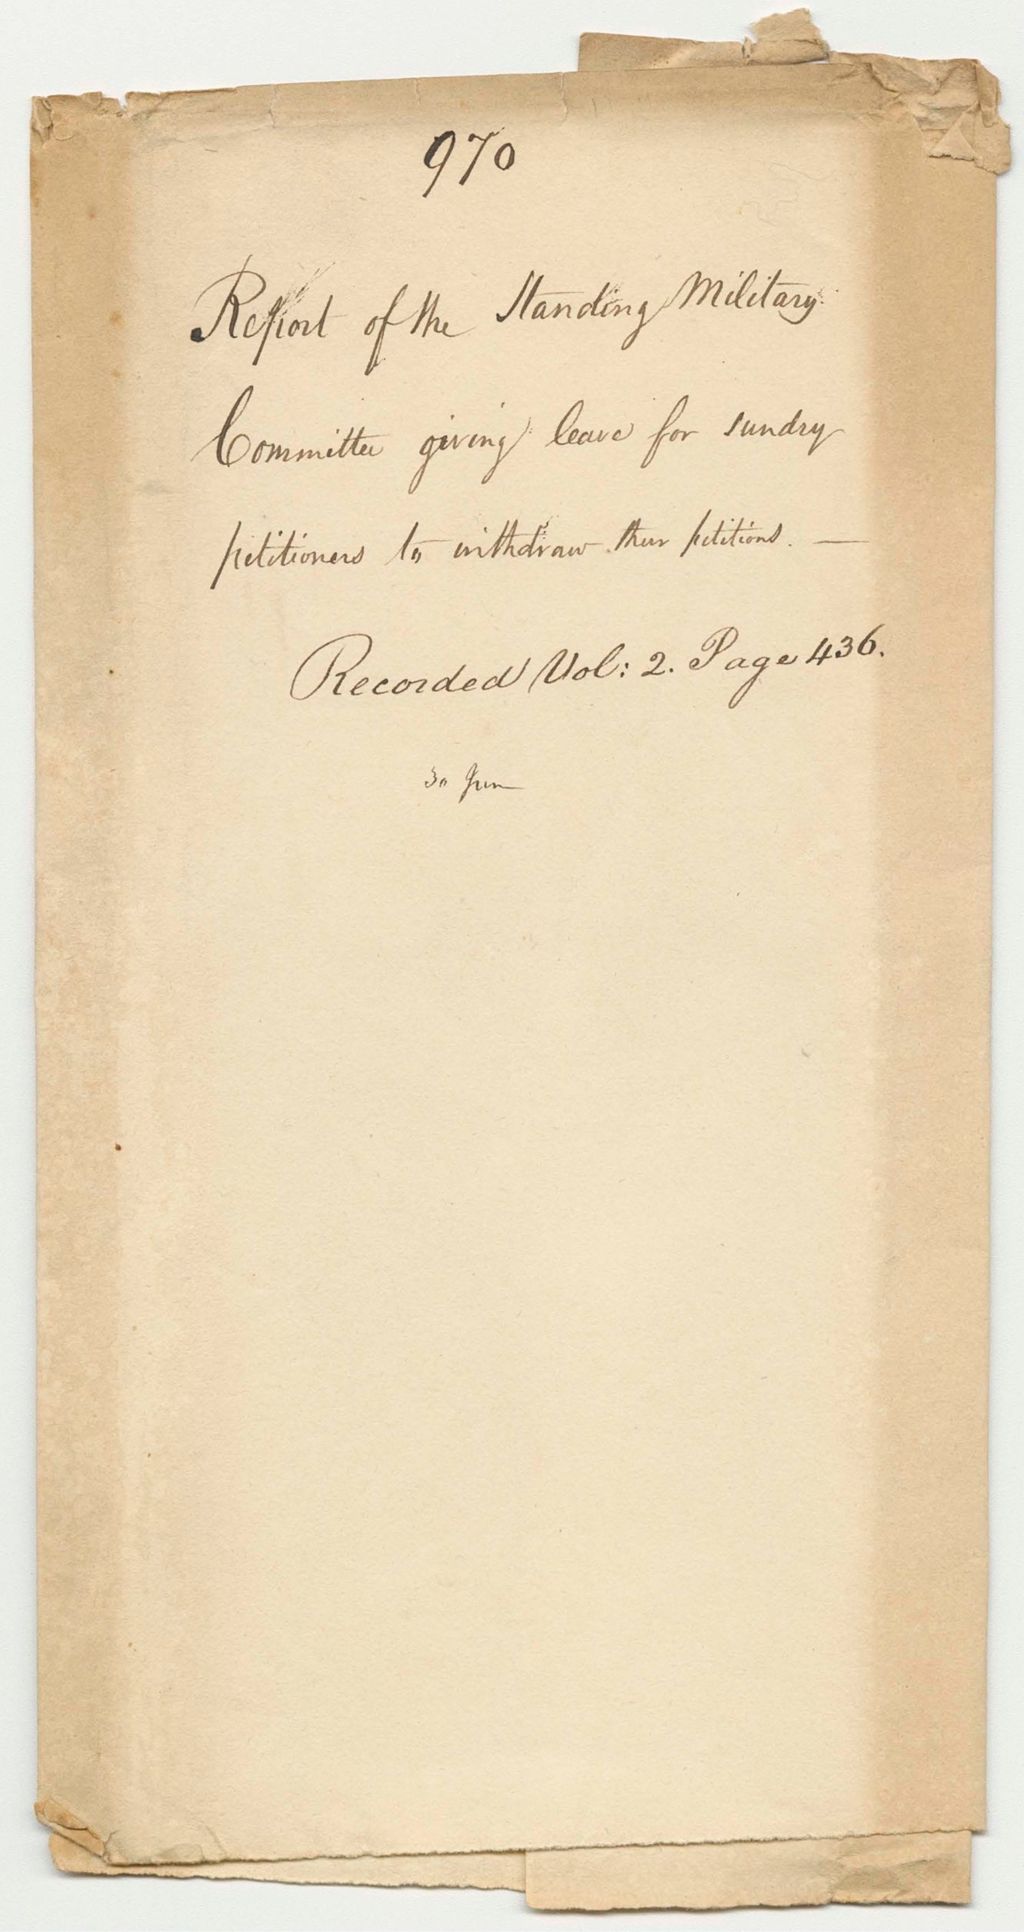 970
Report of the Standing Military
Committee giving leave for sundry
petitioners to withdraw their petitions. —
Recorded Vol: 2. Page 436.
30 Jun